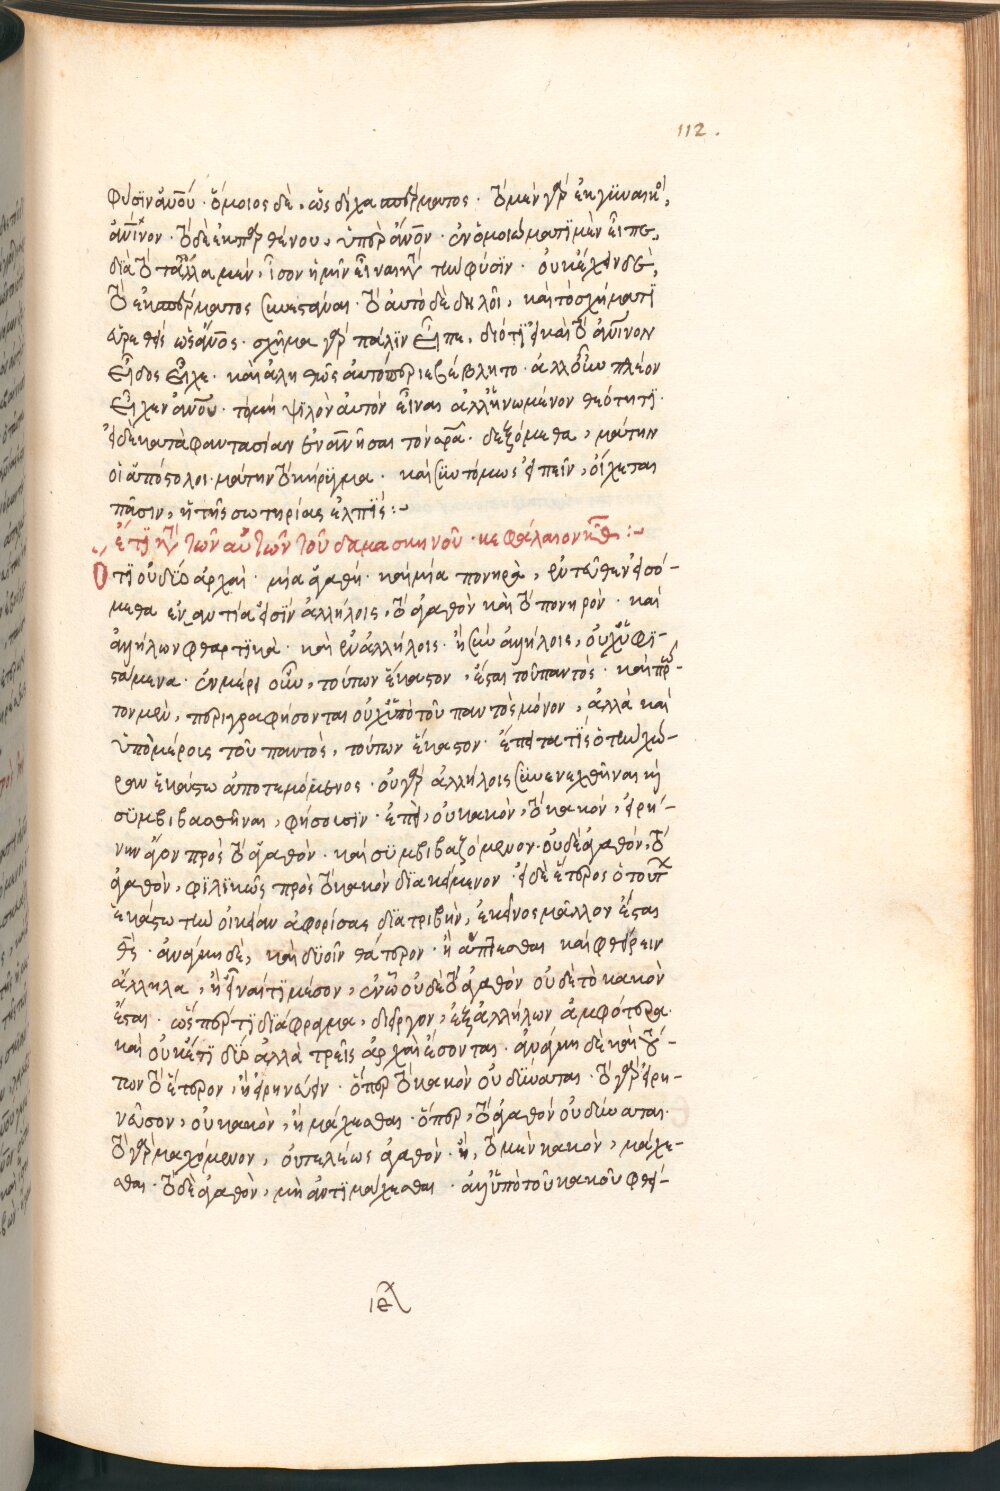 112.
φύσιν ἀνου· ὅμοιος δὲ, ὡς δίχα σπέρματος· τὸ μὲν γὰρ ἐκ γυναικὸς,
ἀνινον· τὸ δὲ ἐκ παρθένου, ὑπὲρ ἄνον· ἐν ὁμοιώματι μὲν εἶπε,
διὰ τὸ τἄλλα μὲν, ἶσον ἡμῖν εἶναι κατὰ τὴν φύσιν· οὐκ ἐλθεῖν δὲ,
τὸ ἐκ σπέρματος συνεστάναι· τὸ αὐτὸ δὲ δηλοῖ, καὶ τὸ σχήματι
εὑρεθεὶς ὡς ἄνος· σχῆμα γὰρ πάλιν εἶπε, διότι εἰ καὶ τὸ ἀνινον
εἶδος εἶχε· καὶ ἀληθῶς αὐτὸ περιεβέβλητο· ἀλλ οὖν πλέον
εἶχεν ἀνου· τὸ μὴ ψιλὸν αὐτὸν εἶναι ἀλλ ἡνωμένον θεότητι·
εἰ δὲ κατὰ φαντασίαν ἐνανῆσαι τὸν δεξόμεθα, μάτην
οἱ ἀπόστολοι· μάτην τὸ κήρυγμα· καὶ συντόμως εἰπεῖν, οἴχεται
πᾶσιν, ἡ τῆς σωτηρίας ἐλπίς:~
ἔτι κατὰ τῶν αὐτῶν τοῦ δαμασκηνοῦ· κεφάλαιον κθ:~
Ὅτι οὐ δύο ἀρχαὶ· μία ἀγαθὴ· καὶ μία πονηρὰ, ἐντεῦθεν εἰσό-
μεθα ἐναντία εἰσὶν ἀλλήλοις, τὸ ἀγαθὸν καὶ τὸ πονηρὸν· καὶ
ἀλλήλων φθαρτικὰ· καὶ ἐν ἀλλήλοις· ἢ σὺν ἀλλήλοις, οὐχ ὑφι-
στάμενα· ἐν μέρει οὖν, τούτων ἕκαστον, ἔσται τοῦ παντὸς· καὶ πρῶ-
τον μὲν, περιγραφήσονται οὐχ ὑπὸ τοῦ παντὸς μόνον, ἀλλὰ καὶ
ὑπὸ μέρους τοῦ παντὸς, τούτων ἕκαστον· ἔπειτα τίς ὁ τὴν χώ-
ραν ἑκάστω ἀποτεμόμενος· οὐ γὰρ ἀλλήλοις συνενεχθῆναι καὶ
συμβιβασθῆναι, φήσουσιν· ἐπεὶ, οὐ κακὸν, τὸ κακὸν, εἰρή-
νην ἄγον πρὸς τὸ ἀγαθὸν· καὶ συμβιβαζόμενον· οὐδὲ ἀγαθὸν, τὸ
ἀγαθὸν, φιλικῶς πρὸς τὸ κακὸν διακείμενον· εἰ δὲ ἕτερος ὁ τούτων
ἑκάστω τὴν οἰκείαν ἀφορίσας διατριβὴν, ἐκεῖνος μᾶλλον ἔσται
θς· ἀνάγκη δὲ, καὶ δυοῖν θάτερον· ἢ ἅπτεσθαι καὶ φθείρειν
ἄλληλα, ἢ εἶναί τι μέσον, ἐν ὧ οὐδὲ τὸ ἀγαθὸν οὐδὲ τὸ κακὸν
ἔσται· ὥσπέρ τι διάφραγμα, διεῖργον, ἐξ ἀλλήλων ἀμφότερα·
καὶ οὐκέτι δύο ἀλλὰ τρεῖς ἀρχαὶ ἔσονται· ἀνάγκη δὲ καὶ τού-
των τὸ ἕτερον, ἢ εἰρηνεύειν· ὅπερ τὸ κακὸν οὐ δύναται· τὸ γὰρ εἰρη-
νεῦσον, οὐ κακὸν, ἢ μάχεσθαι· ὅπερ, τὸ ἀγαθὸν οὐ δύναται·
τὸ γὰρ μαχόμενον, οὐ τελέως ἀγαθὸν· ἢ, τὸ μὲν κακὸν, μάχε-
σθαι· τὸ δὲ ἀγαθὸν, μὴ ἀντιμάχεσθαι· ἀλλ ὑπὸ τοῦ κακοῦ φθεί-